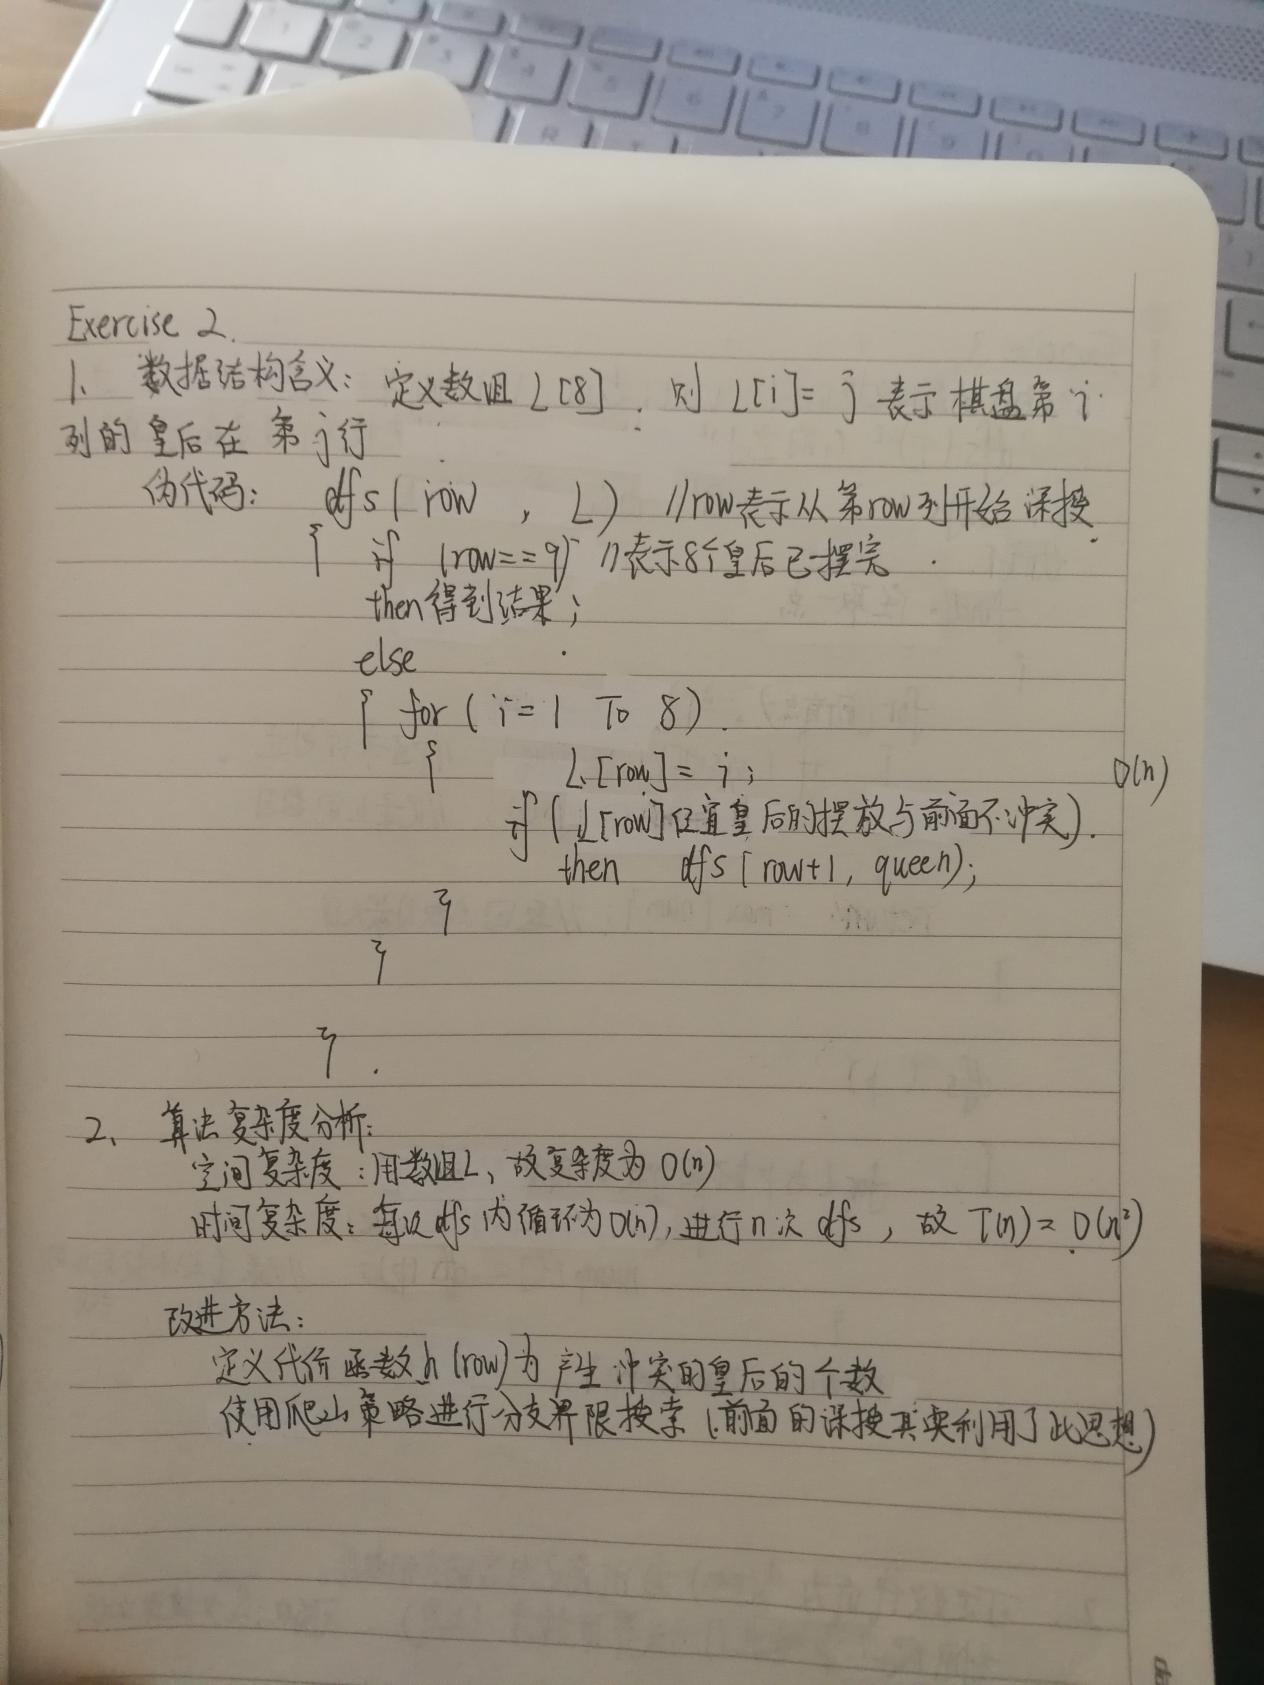 Exercise 2.
1、 数据结构含义： 定义数组 L[8]. 则 L[i]= j 表示棋盘第 i
列的皇后在第 j 行
伪代码： dfs( row , L) //row表示从第row列开始深搜.
{ if (row==9) //表示8个皇后已摆完.
then得到结果;
else
{ for ( i= 1 To 8).
{ L[row]= i; O(n)
if (L[row]位宜皇后的摆放与前面不冲突).
then dfs[ row+1, queen);
}
}
}.
2、 算法复杂度分析:
空间复杂度: 用数组L, 故复杂度为 O(n)
时间复杂度: 每次dfs内循环为O(n), 进行n次 dfs, 故 T(n)= O(n²)
改进方法:
定义代价函数h(row)为产生冲突的皇后的个数
使用爬山策略进行分支界限搜索 (前面的深搜其实利用了此思想)